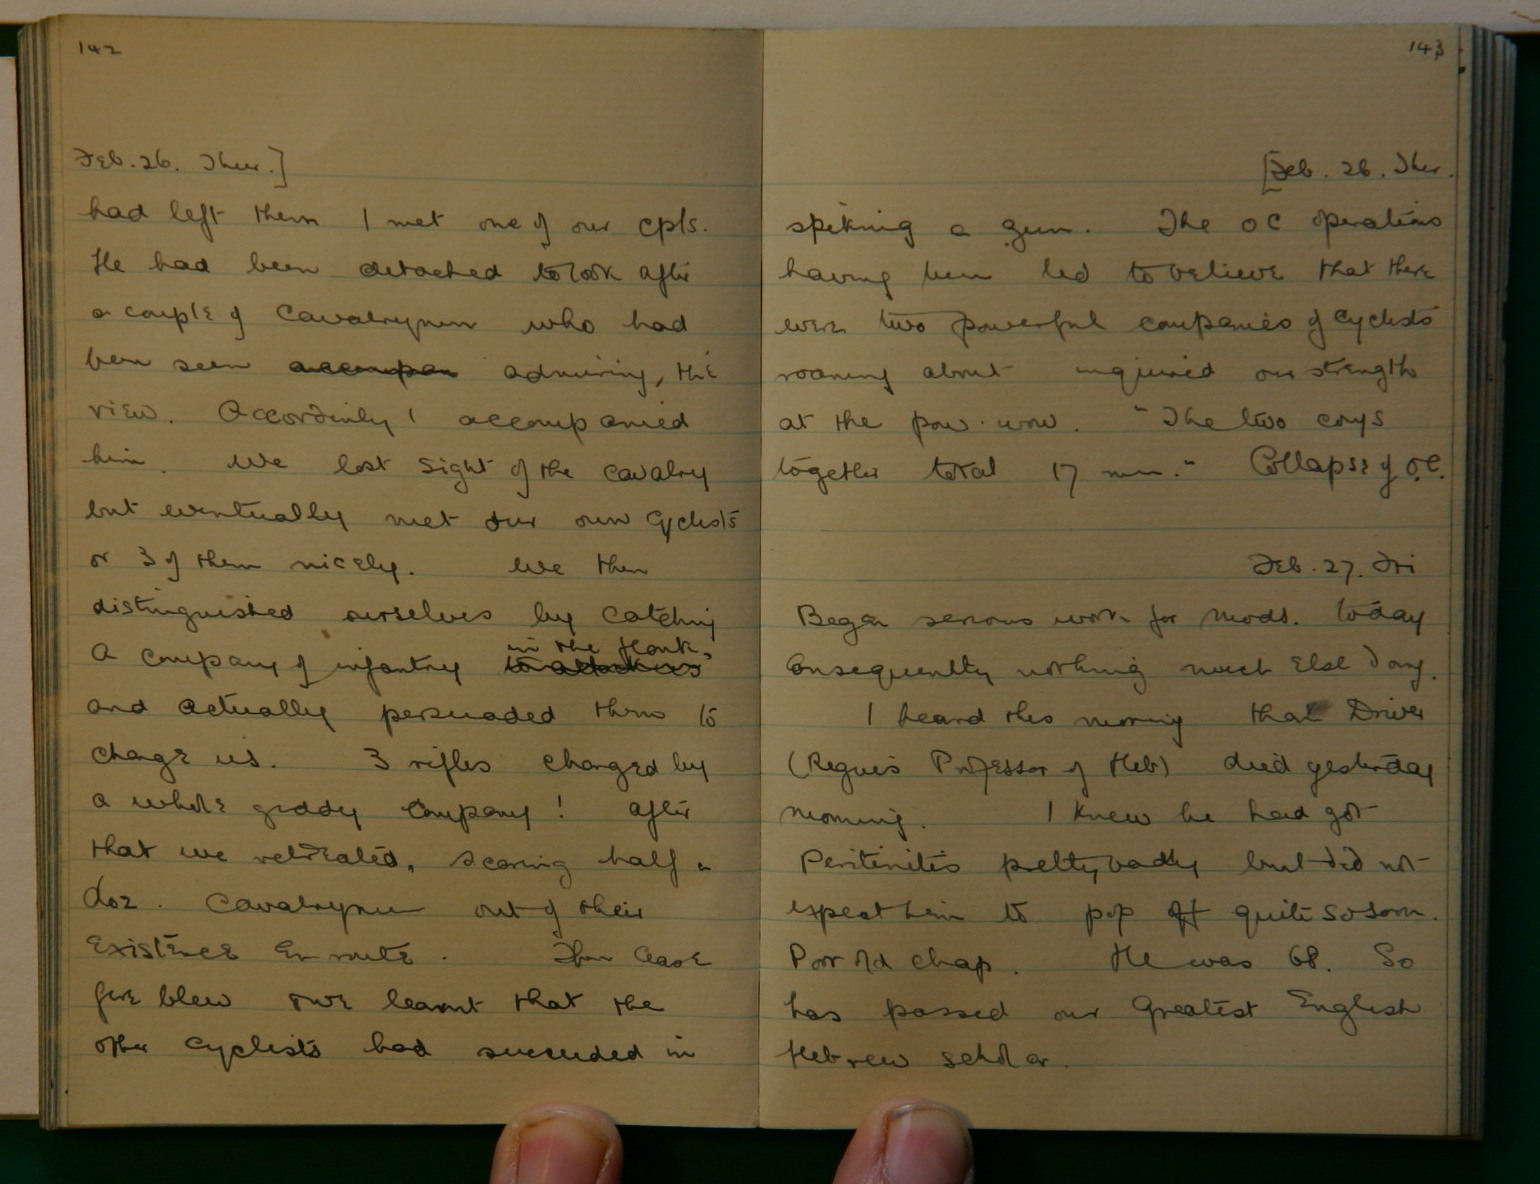 142
Feb. 26. Thur.]
had left them I met one of our cpls.
He had been detached to look after
a couple of cavalrymen who had
been seen accompan admiring, the
view. Accordinly I accompanied
him. We lost sight of the cavalry
but eventually met our own cyclists
or 3 of them nicely. We then
distinguished ourselves by catching
in the flank,
a company of infantry
and actually persuaded them to
charge us. 3 rifles charged by
a whole giddy company! After
that we retreated, scaring half a
doz. cavalrymen out of their
existence en route. Then cease
fire blew & we learnt that the
other cyclists had succeeded in
143
[Feb. 26. Thur.
spiking a gun. The OC operations
having been led to believe that there
were two powerful companies of cyclists
roaming about inquired our strength
at the pow-wow. "The two coys
together total 17 men." Collapse of O.C.
Feb. 27. Fri
Began serious work for Mods. today
Consequently nothing much else doing.
I heard this morning that Driver
(Regius Professor of Heb) died yesterday
morning. I knew he had got
Peritinitis pretty badly but did not
expect him to pop off quite so soon.
Poor old chap. He was 68. So
has passed our greatest English
Hebrew scholar.